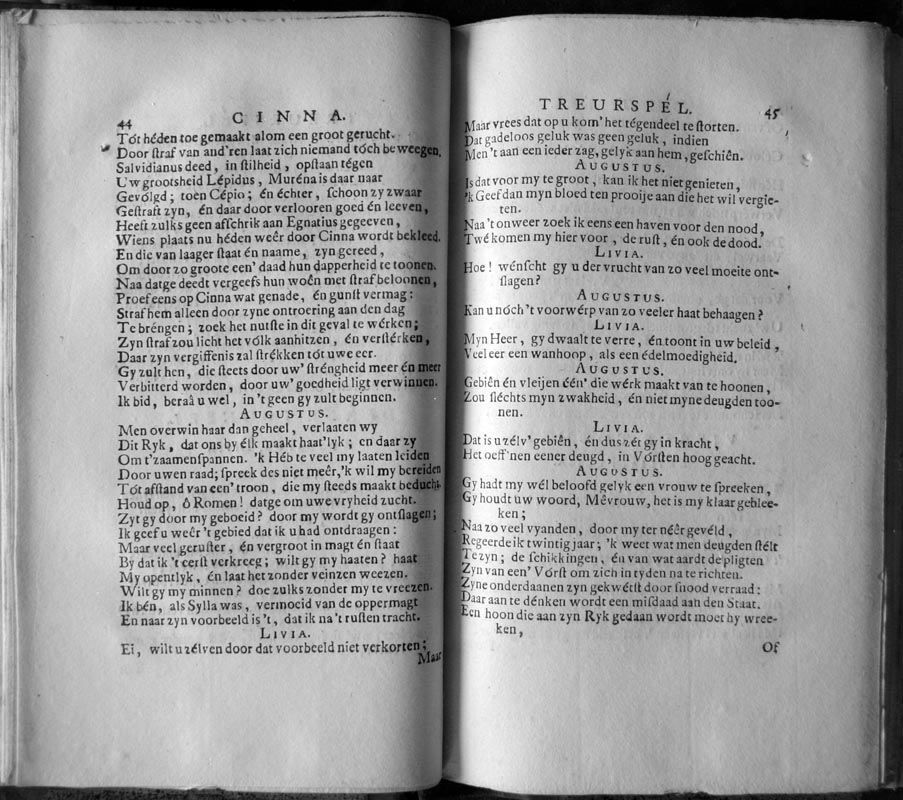 44
CINNA.
Tót héden toe gemaakt alom een groot gerucht.
Door ſtraf van and'ren laat zich niemand tóch beweegen.
Salvidianus deed, in ſtilheid, opſtaan tégen
Uw grootsheid Lépidus, Muréna is daar naar
Gevólgd; toen Cépio; én échter, ſchoon zy zwaar
Geſtraft zyn, én daar door verlooren goed én leeven,
Heeft zulks geen affchrik aan Egnatius gegeeven,
Wiens plaats nu héden weêr door Cinna wordt bekleed.
En die van laager ſtaat én naame, zyn gereed,
Om door zo groote een' daad hun dapperheid te toonen.
Naa datge deedt vergeefs hun woên met ſtraf beloonen,
Proef eens op Cinna wat genade, én gunſt vermag:
Straf hem alleen door zyne ontroering aan den dag
Te bréngen; zoek het nutſte in dit geval te wérken;
Zyn ſtraf zou licht het vólk aanhitzen, én verſtérken,
Daar zyn vergiffenis zal ſtrékken tót uwe eer.
Gy zult hen, die ſteets door uw' ſtréngheid meer én meer
Verbitterd worden, door uw' goedheid ligt verwinnen.
Ik bid, beraâ u wel, in 't geen gy zult beginnen.
AUGUSTUS.
Men overwin haar dan geheel, verlaaten wy
Dit Ryk, dat ons by élk maakt haat'lyk; en daar zy
Om t'zaamenſpannen. 'k Héb te veel my laaten leiden
Door uwen raad; ſpreek des niet meêr, 'k wil my bereiden
Tót afſtand van een' troon, die my ſteeds maakt beducht.
Houd op, ô Romen! datge om uwe vryheid zucht.
Zyt gy door my geboeid? door my wordt gy ontſlagen;
Ik geef u weêr 't gebied dat ik u had ontdraagen:
Maar veel geruſter, én vergroot in magt én ſtaat
By dat ik 't eerſt verkreeg; wilt gy my haaten? haat
My opentlyk, én laat het zonder veinzen weezen.
Wilt gy my minnen? doe zulks zonder my te vreezen.
Ik bén, als Sylla was, vermoeid van de oppermagt
En naar zyn voorbeeld is 't, dat ik na 't ruſten tracht.
LIVIA.
Ei, wilt u zélven door dat voorbeeld niet verkorten;
Maar
TREURSPÉL.
45
Maar vrees dat op u kom' het tégendeel te ſtorten.
Dat gadeloos geluk was geen geluk, indien
Men 't aan een ieder zag, gelyk aan hem, geſchiên.
AUGUSTUS.
Is dat voor my te groot, kan ik het niet genieten,
'k Geef dan myn bloed ten prooije aan die het wil vergie-
ten.
Naa 't onweer zoek ik eens een haven voor den nood,
Twé komen my hier voor, de ruſt, én ook de dood.
LIVIA.
Hoe! wénſcht gy u der vrucht van zo veel moeite ont-
ſlagen?
AUGUSTUS.
Kan u nóch 't voorwérp van zo veeler haat behaagen?
LIVIA.
Myn Heer, gy dwaalt te verre, én toont in uw beleid,
Veel eer een wanhoop, als een édelmoedigheid.
AUGUSTUS.
Gebiên én vleijen één' die wérk maakt van te hoonen,
Zou ſléchts myn zwakheid, én niet myne deugden too-
nen.
LIVIA.
Dat is u zélv' gebiên, én dus zét gy in kracht,
Het oeff'nen eener deugd, in Vórſten hoog geacht.
AUGUSTUS.
Gy hadt my wél beloofd gelyk een vrouw te ſpreeken,
Gy houdt uw woord, Mêvrouw, het is my klaar geblee-
ken;
Naa zo veel vyanden, door my ter néêr gevéld,
Regeerde ik twintig jaar; 'k weet wat men deugden ſtélt
Te zyn; de ſchikkingen, én van wat aardt de pligten
Zyn van een' Vórſt om zich in tyden na te richten.
Zyne onderdaanen zyn gekwétſt door ſnood verraad:
Daar aan te dénken wordt een miſdaad aan den Staat.
Een hoon die aan zyn Ryk gedaan wordt moet hy wree-
ken,
Of